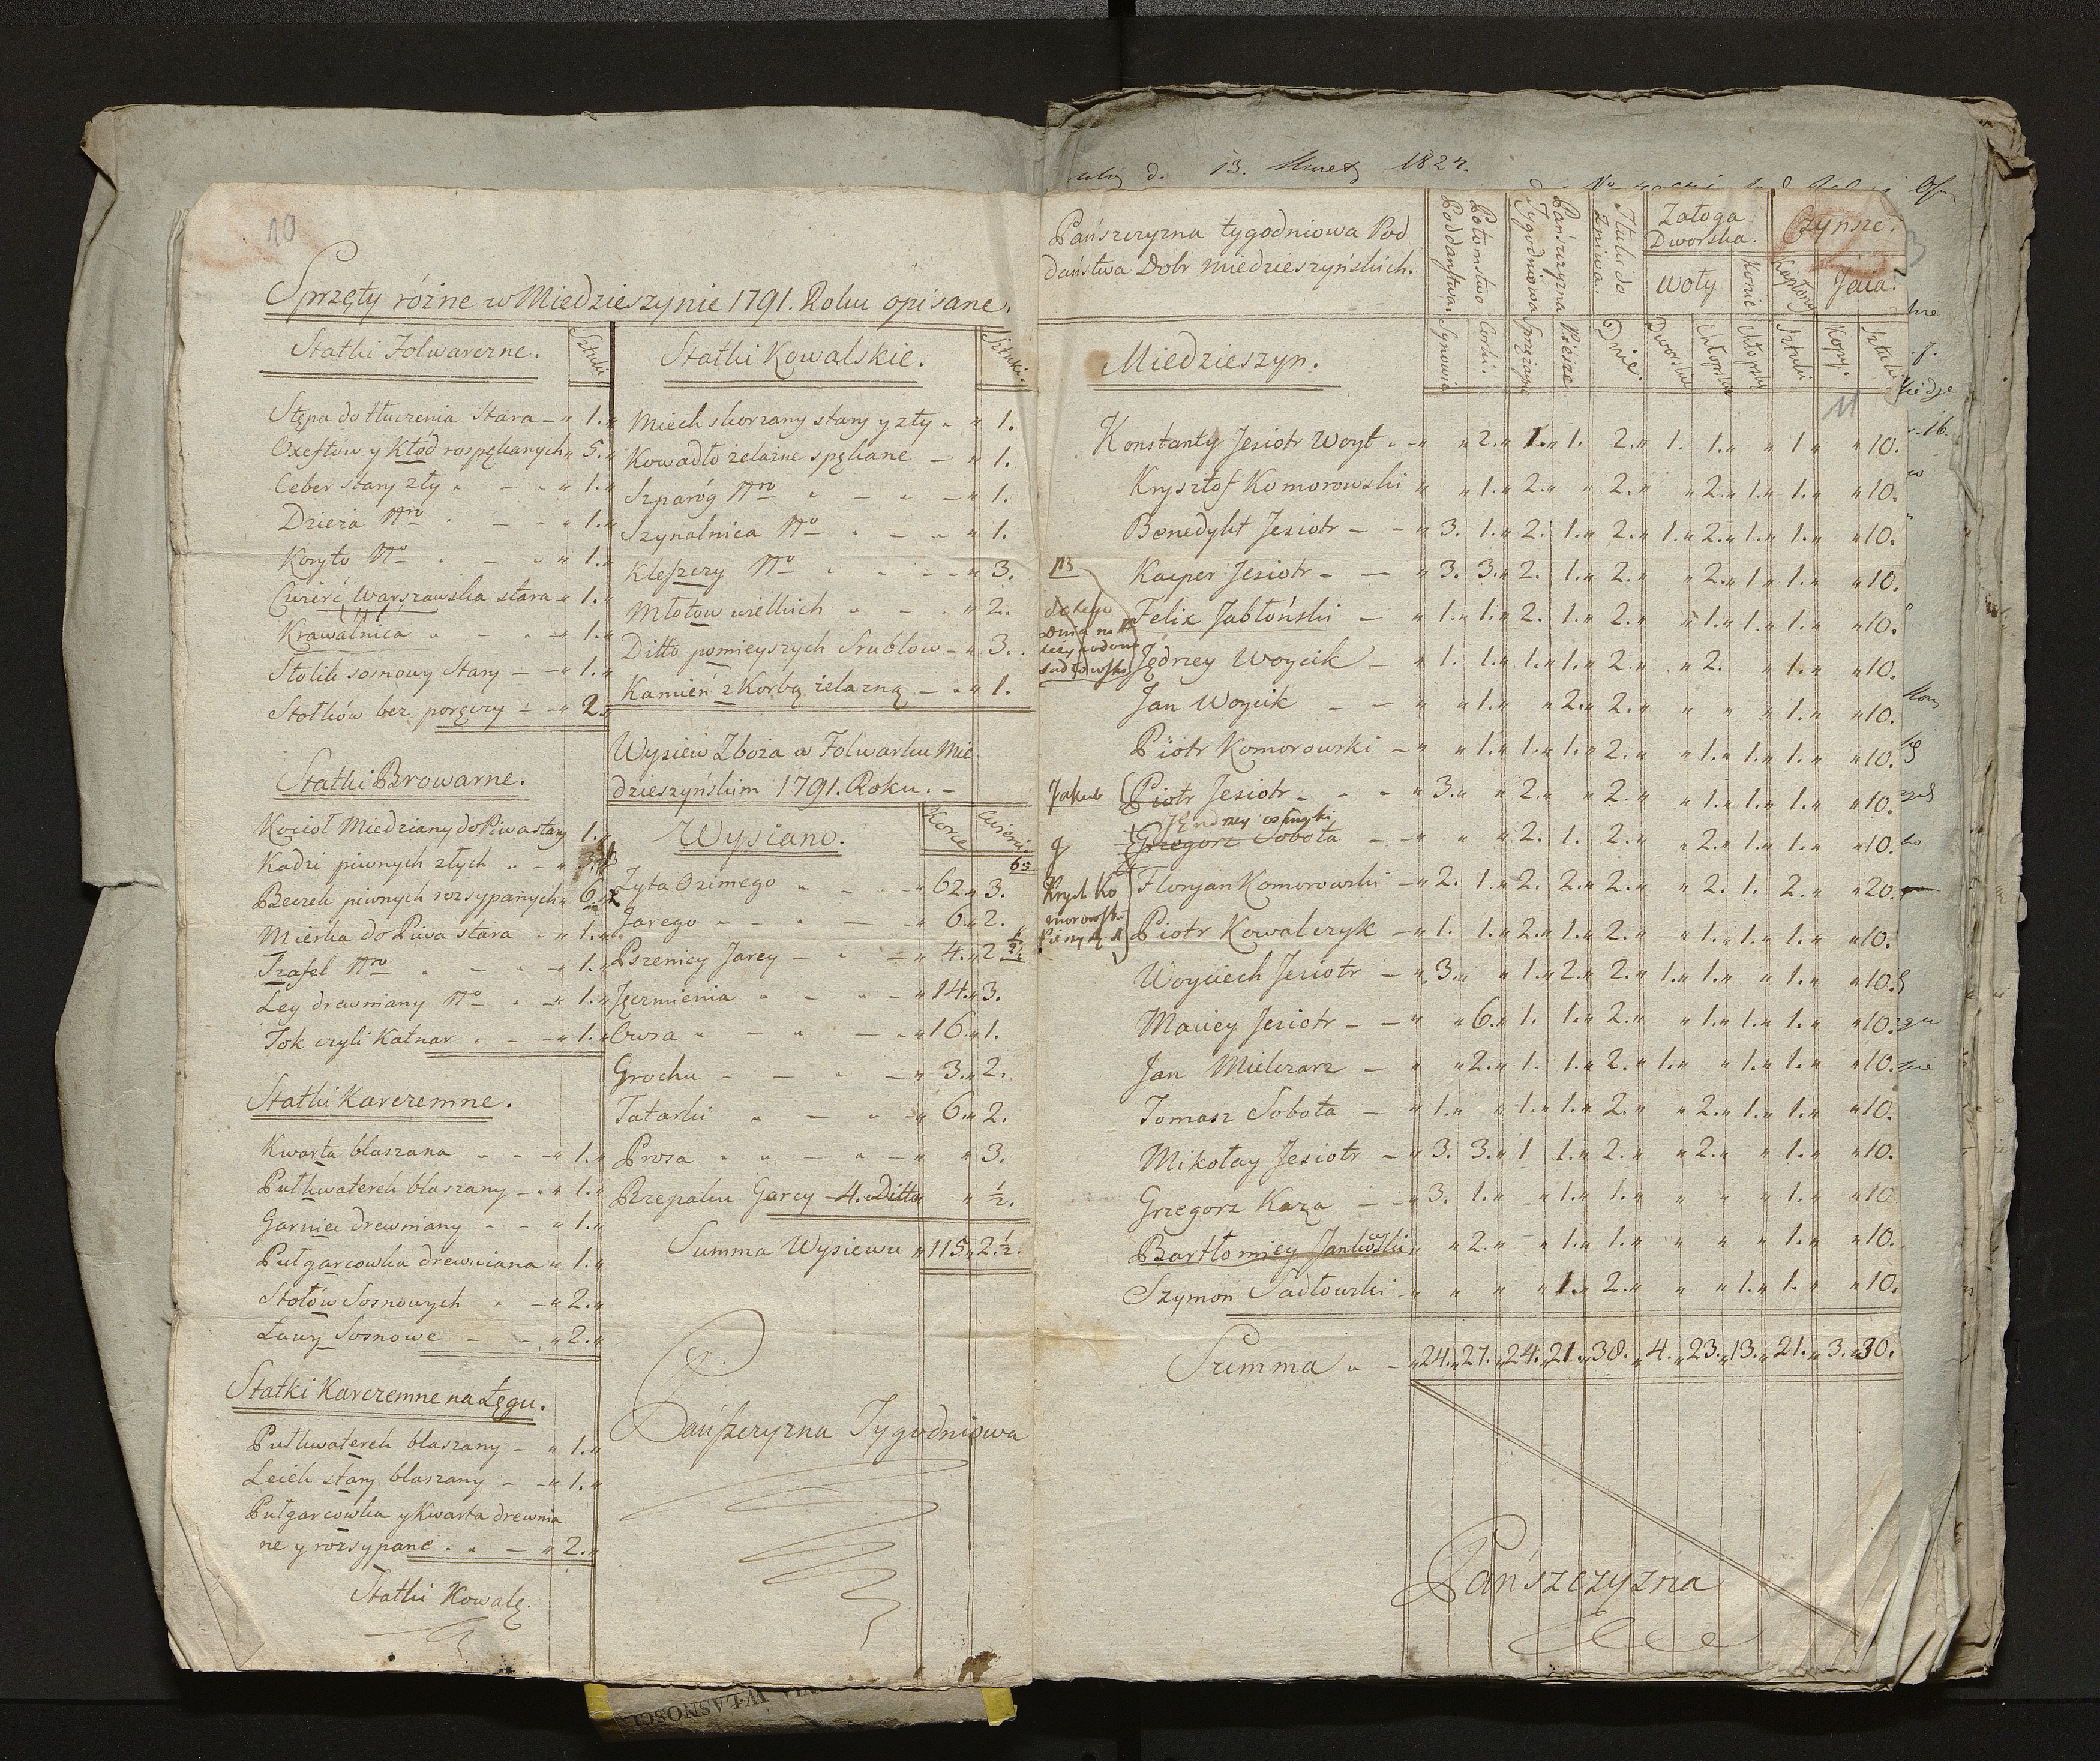 10
Sprzęty różne w Miedzieszynie 1791. Roku opisane.
Statki Folwarczne. Sztuki
Stępa do tłuczenia stara – „ 1. „
Oxeftow y Kłód rospękanych „ 5. „
Ceber stary zły „ – „ 1. „
Dzieża Nro „ – „ 1. „
Koryto No „ – „ 1. „
Cwierć Warszawska stara „ 1. „
Krawalnica „ – „ 1. „
Stolik sosnowy Stary – „ 1. „
Stołków bez poręczy – „ 2. „
Statki Browarne.
Kocioł Miedziany do Piwa stary 1. „
Kadzi piwnych złych „ – „ 3.
Beczek piwnych rozsypanych „ 6.
Mierka do Piwa stara „ 1. „
Trafel Nro „ – „ 1. „
Ley drewniany No „ – „ 1. „
Tok czyli Katnar „ – „ 1. „
Statki Karczemne.
Kwarta blaszana – „ 1. „
Pułkwaterek blaszany – „ 1. „
Garniec drewniany – „ 1. „
Pułgarcowka drewniana „ 1. „
Stołów Sosnowych „ – „ 2. „
Ławy Sosnowe – „ 2. „
Statki Karczemne na Łęgu.
Pułkwaterek blaszany – „ 1. „
Leiek stary blaszany – „ 1. „
Pułgarcowka y Kwarta drewnia
ne y rozsypane „ – „ 2. „
Statki Kowalę.
Statki Kowalskie. Sztuki.
Miech skorzany stary y zły „ „ 1.
Kowadło żelazne spękane – „ 1.
Szparóg Nro „ – „ 1.
Szynalnica No „ – „ 1.
Kleszczy No „ – „ 3.
Młotow wielkich „ – „ 2.
Ditto pomieyszych Srublow – „ 3.
Kamień z Korbą żelazną – „ 1.
Wysiew Zboża w Folwarku Mie
dzieszyńskim 1791. Roku. –
Wysiano. Korce Cwierci
65
Żyta Ozimego „ – „ 62 „ 3.
Jarego – „ 6 „ 2.
Pszenicy Jarey – „ 4 „ 2
Jęczmienia „ – „ 14 „ 3.
Owsa „ – „ 16 „ 1.
Grochu – „ 3 „ 2.
Tatarki „ – „ 6 „ 2.
Prosa „ – „ „ 3.
Rzepaku Garcy – 4. Ditto „ „ ½.
Summa Wysiewu „ 115 „ 2 ½.
Pańszczyzna Tygodniowa
d. 13. 1824.
Pańszczyzna tygodniowa Pod
daństwa Dobr Miedzieszyńskich.
Poddaństwa Synowie
Potomstwo Corki.
Tygodniowa Sprzężaye
Pańszczyzna Piesze
Tłuki do Żniwa. Dnie.
Załoga Dworska.
Woły Konie
Dworskie Chłopskie Chłopskie
Czynsze.
Kapłony Sztuki
Jaia. Kopy. Sztuki
Miedzieszyn.
11
Konstanty Jesiotr Woyt „ „ „ 2. „ 1. „ 1. 2. „ 1. 1. „ „ 1 „ „ 10.
Krysztof Komorowski „ „ 1. „ 2. „ „ 2. „ „ 2. „ 1. „ 1. „ „ 10.
Benedykt Jesiotr – „ 3. 1. „ 2. 1. „ 2. „ 1. „ 2. „ 1. „ 1. „ „ 10.
Kacper Jesiotr – „ 3. 3. „ 2. 1. „ 2. „ „ 2. „ 1. „ 1. „ „ 10.
Felix Jabłoński – „ 1. „ 1. „ 2. 1. „ 2. „ „ 1. „ 1. „ 1. „ „ 10.
Jędrzey Woycik – „ 1. 1. „ 1. „ 1. „ 2. „ „ 2. „ 1. „ „ 10.
Jan Woycik – „ „ 1. „ „ 2. „ 2. „ „ „ „ 1. „ „ 10.
Piotr Komorowski – „ „ 1. „ 1. „ 1. „ 2. „ „ 1. „ 1. „ 1. „ „ 10.
Jakub Piotr Jesiotr – „ 3. „ „ 2. „ „ 2. „ „ 1. „ 1. „ 1. „ „ 10.
Grzegorz Sobota – „ „ „ 2. 1. 2. „ „ 2. „ 1. „ 1. „ „ 10.
Floryan Komorowski – „ 2. 1. „ 2. 2. „ 2. „ „ 2. 1. 2. „ „ 20.
Krych Ko
morowski
Piotr Kowalczyk – „ 1. 1. „ 2. „ 1. „ 2. „ „ 1. „ 1. „ 1. „ „ 10.
Woyciech Jesiotr – „ 3. „ „ 1. „ 2. „ 2. „ 1. „ 1. „ „ 1. „ „ 10.
Maciey Jesiotr – „ „ 6. „ 1. 1. „ 2. „ „ 1. „ 1. „ 1. „ „ 10.
Jan Mielczarz – „ „ 2. „ 1. 1. „ 2. „ 1. „ „ 1. „ 1. „ „ 10.
Tomasz Sobota – „ 1. „ „ 1. „ 1. „ 2. „ „ 2. „ 1. „ 1. „ „ 10.
Mikołay Jesiotr – „ 3. 3. „ 1 1. „ 2. „ „ 2. „ „ 1. „ „ 10.
Grzegorz Kaza – „ 3. 1. „ „ 1. „ 1. „ „ „ „ 1. „ „ 10
Bartłomiey Jankowski „ „ 2. „ „ 1. „ 1. „ „ „ „ 1. „ „ 10.
Szymon Sadłowski „ „ „ „ 1. „ 2. „ „ „ 1. „ 1. „ „ 10.
Summa „ – „ 24. „ 27. „ 24. „ 21. „ 38. „ 4. „ 23. „ 13. „ 21. „ 3. „ 30.
Pańszczyzna
WŁASNOŚCI